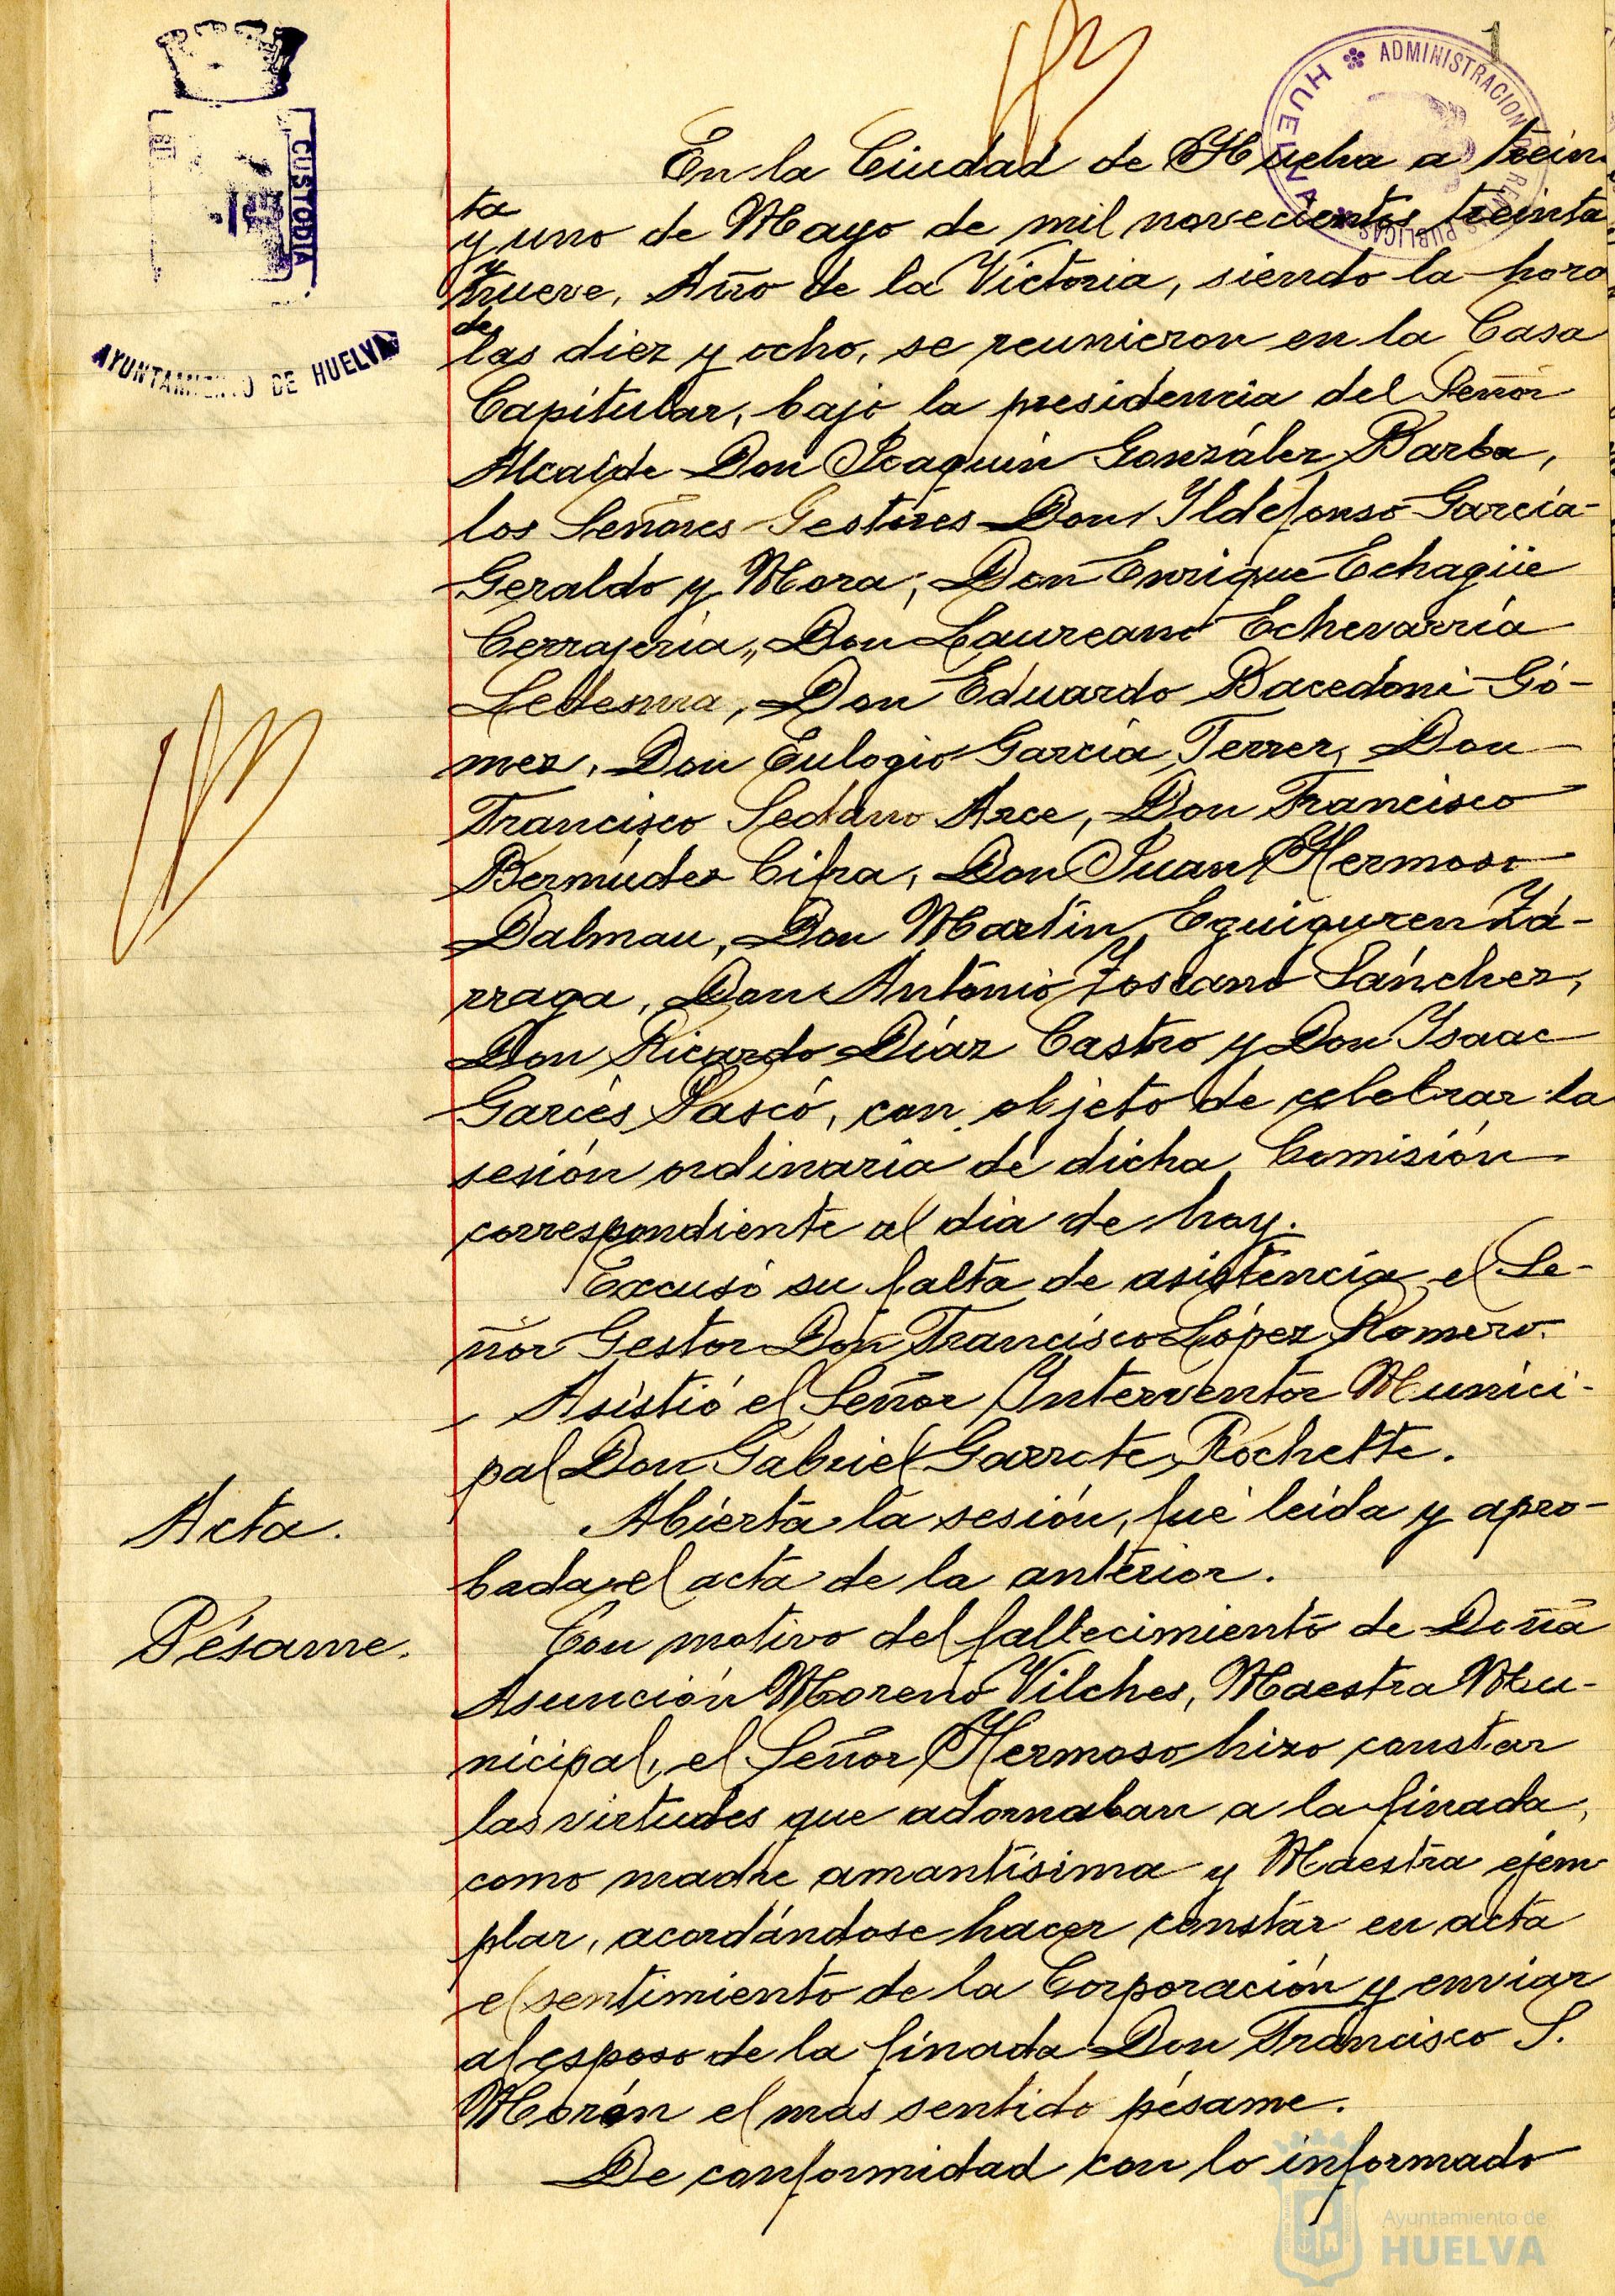 1
ADMINISTRACION DE RENTAS PUBLICAS
HUELVA
CUSTODIA
AYUNTAMIENTO DE HUELVA
En la Ciudad de Huelva a trein
ta y uno de Mayo de mil novecientos treinta
y nueve, Año de la Victoria, siendo la hora
de las diez y ocho, se reunieron en la Casa
Capitular, bajo la presidencia del Señor
Alcalde Don Joaquín González Barba,
los Señores Gestores Don Ildefonso García-
Geraldo y Mora, Don Enrique Echagüe
Cerrajería, Don Laureano Echevarría
Ledesma, Don Eduardo Bacedoni Gó-
mez, Don Eulogio García Ferrer, Don
Francisco Sedano Arce, Don Francisco
Bermúdez Cifra, Don Juan Hermoso
Dalmau, Don Martín Eguiguren Zá-
rraga, Don Antonio Toscano Sánchez,
Don Ricardo Díaz Castro y Don Isaac
Garcés Pascó, con objeto de celebrar la
sesión ordinaria de dicha Comisión
correspondiente al día de hoy.
Excusó su falta de asistencia el Se-
ñor Gestor Don Francisco López Romero.
Asistió el Señor Interventor Munici-
pal Don Gabriel Garrote Rochette.
Acta.
Abierta la sesión, fué leída y apro-
bada el acta de la anterior.
Pésame.
Con motivo del fallecimiento de Doña
Asunción Moreno Vilches, Maestra Mu-
nicipal, el Señor Hermoso hizo constar
las virtudes que adornaban a la finada,
como madre amantísima y Maestra ejem
plar, acordándose hacer constar en acta
el sentimiento de la Corporación y enviar
al esposo de la finada Don Francisco S.
Morón el mas sentido pésame.
De conformidad con lo informado
Ayuntamiento de
HUELVA